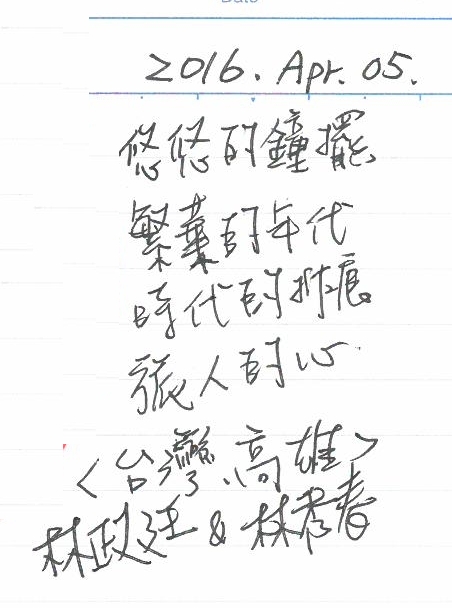 Date
2016. Apr. 05.
悠悠的鐘擺
繁華的年代
時代的
人的心
<台灣.高雄>
林政廷 & 林秀春